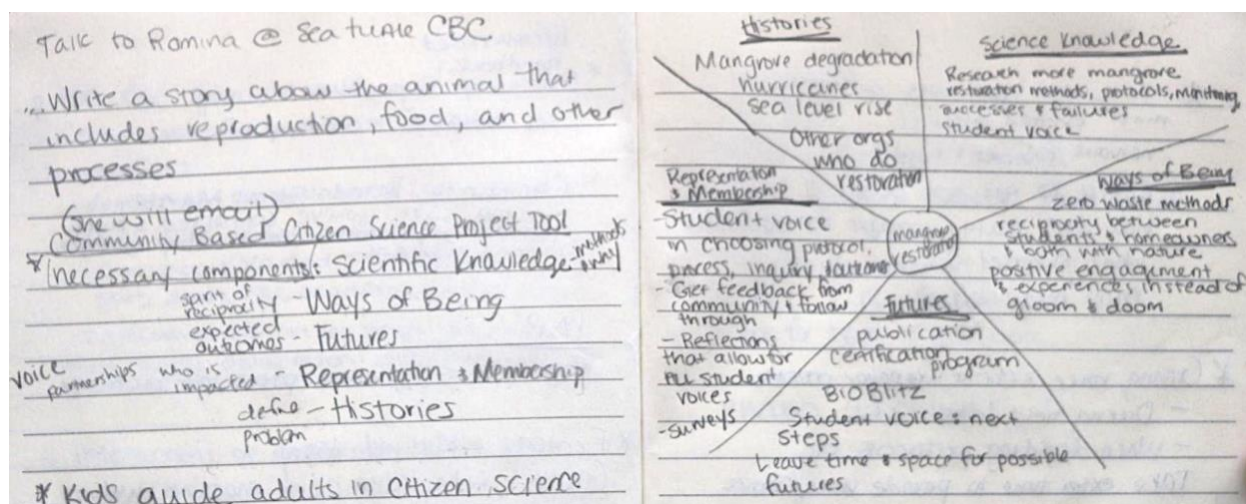 Talk to Romina @ Sea turtle CBC
Write a story about the animal that
includes reproduction, food, and other
processes
(she will email)
Community Based Citizen Science Project Tool
* necessary components: Scientific Knowledge - methods & why
spirit of reciprocity Ways of Being
expected outcomes - Futures
voice partnerships who is impacted - Representation & Membership
define problem - Histories
* Kids guide adults in citizen science
Histories
Mangrove degradation
hurricanes
sea level rise
Other orgs
who do
restoration
Science Knowledge
Research more mangrove
restoration methods, protocols, monitoring,
successes & failures
student voice
Ways of Being
zero waste methods
reciprocity between
students & homeowners
& both with nature
positive engagement
& experiences instead of
gloom & doom
mangrove
restoration
Representation
& Membership
- Student voice
in choosing protocol,
process, inquiry & outcome
Get feedback from
community & follow
through
- Reflections
that allow for
all student
voices
- surveys
Futures
publication
certification
program
BioBlitz
Student voice & next
steps
Leave time & space for possible
futures